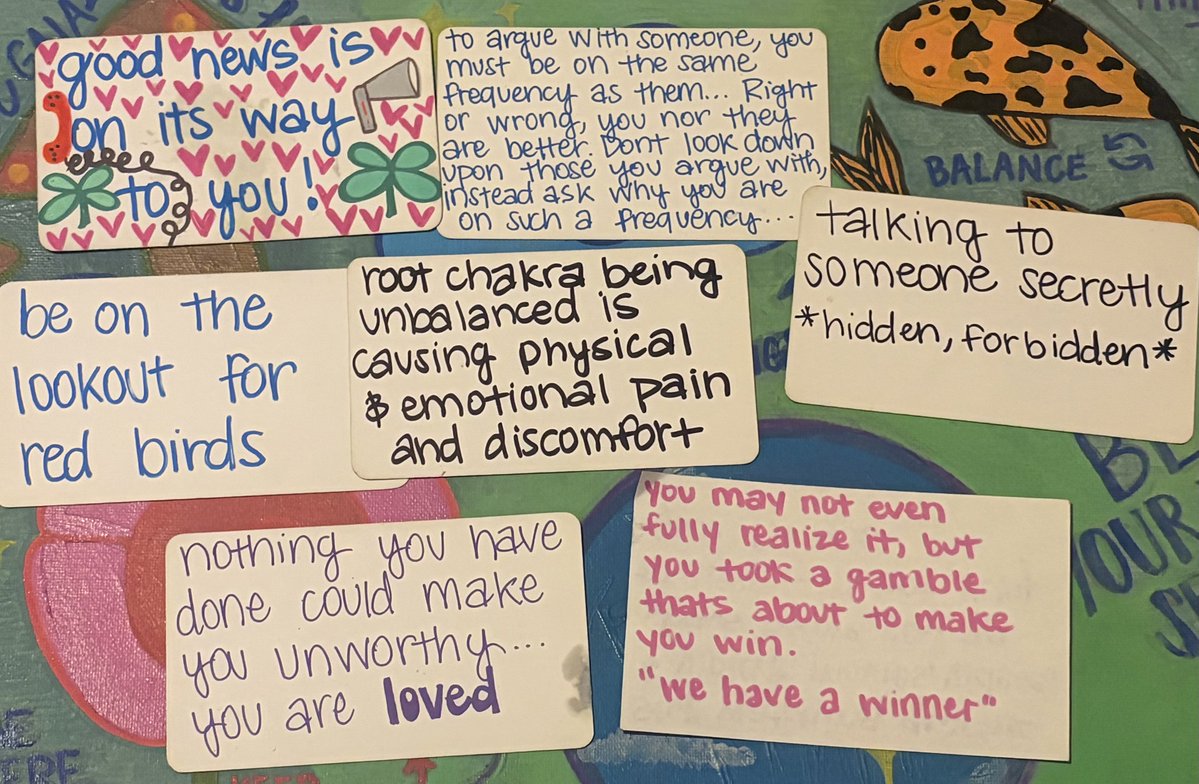 good news is
on its way
to you!
to argue with someone, you
must be on the same
frequency as them... Right
or wrong, you nor they
are better. Dont look down
upon those you argue with,
instead ask why you are
on such a frequency...
BALANCE
talking to
someone secretly
*hidden, forbidden*
be on the
lookout for
red birds
root chakra being
unbalanced is
causing physical
& emotional pain
and discomfort
nothing you have
done could make
you unworthy...
you are loved
you may not even
fully realize it, but
you took a gamble
thats about to make
you win.
"we have a winner"
YOUR